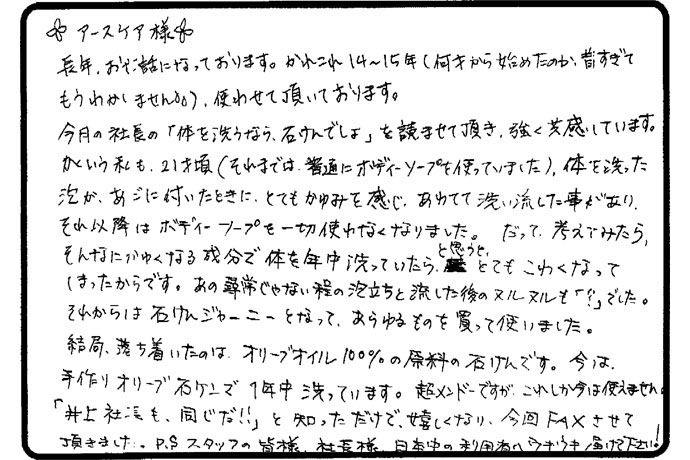 アースケア様
長年、お世話になっております。かれこれ14〜15年(何才から始めたのか、昔すぎて
もうわかりません)、使わせて頂いております。
今月の社長の「体を洗うなら、石けんでしょ」を読ませて頂き、強く共感しています。
かくいう私も、21才頃(それまでは、普通にボディーソープを使っていました)、体を洗った
泡が、あごに付いたときに、とてもかゆみを感じ、あわてて洗い流した事があり、
それ以降はボディーソープを一切使わなくなりました。だって、考えてみたら、
そんなにかゆくなる成分で体を年中洗っていたら、と思うと、とてもこわくなって
しまったからです。あの尋常じゃない程の泡立ちと流した後のヌルヌルも「?」でした。
それからは石けんジャーニーとなって、あらゆるものを買って使いました。
結局、落ち着いたのは、オリーブオイル100%の原料の石けんです。今は、
手作りオリーブ石ケンで1年中洗っています。超メンドーですが、これしか今は使えません。
「井上社長も、同じだ!!」と知っただけで、嬉しくなり、今回FAXさせて
頂きました。P.S スタッフの皆様、社長様、日本中の利用者へウキウキ届けて下さい!